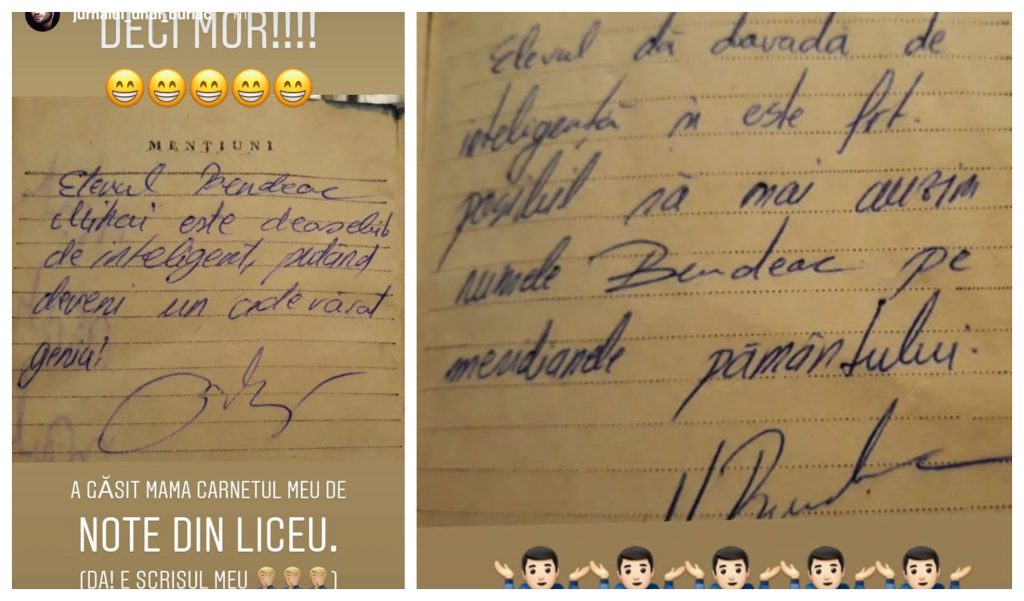 jurnalul unui burlac
DECI MOR!!!!
MENȚIUNI
Elevul Bendeac
Mihai este deosebit
de inteligent, putând
deveni un adevărat
geniu!
A GĂSIT MAMA CARNETUL MEU DE
NOTE DIN LICEU.
(DA! E SCRISUL MEU)
Elevul dă dovadă de
inteligență și este frt.
posibil să mai auzim
numele Bendeac pe
meridianele pământului.